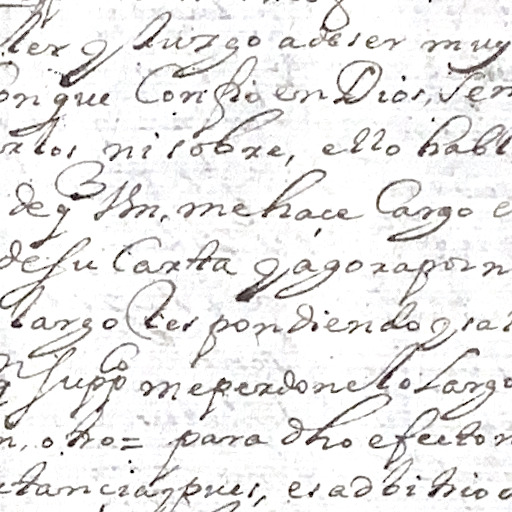 ler q Juzgo a de ser muy
con que Confio en Dios, Sen
ni sobre, ello habl
de q Vm, me haçe Cargo e
de su Carta q agora por n
largo Respondiendo q sa
supp.co me perdone lo Largo
n, otro = para dho efecto n
pues, es adbitrio